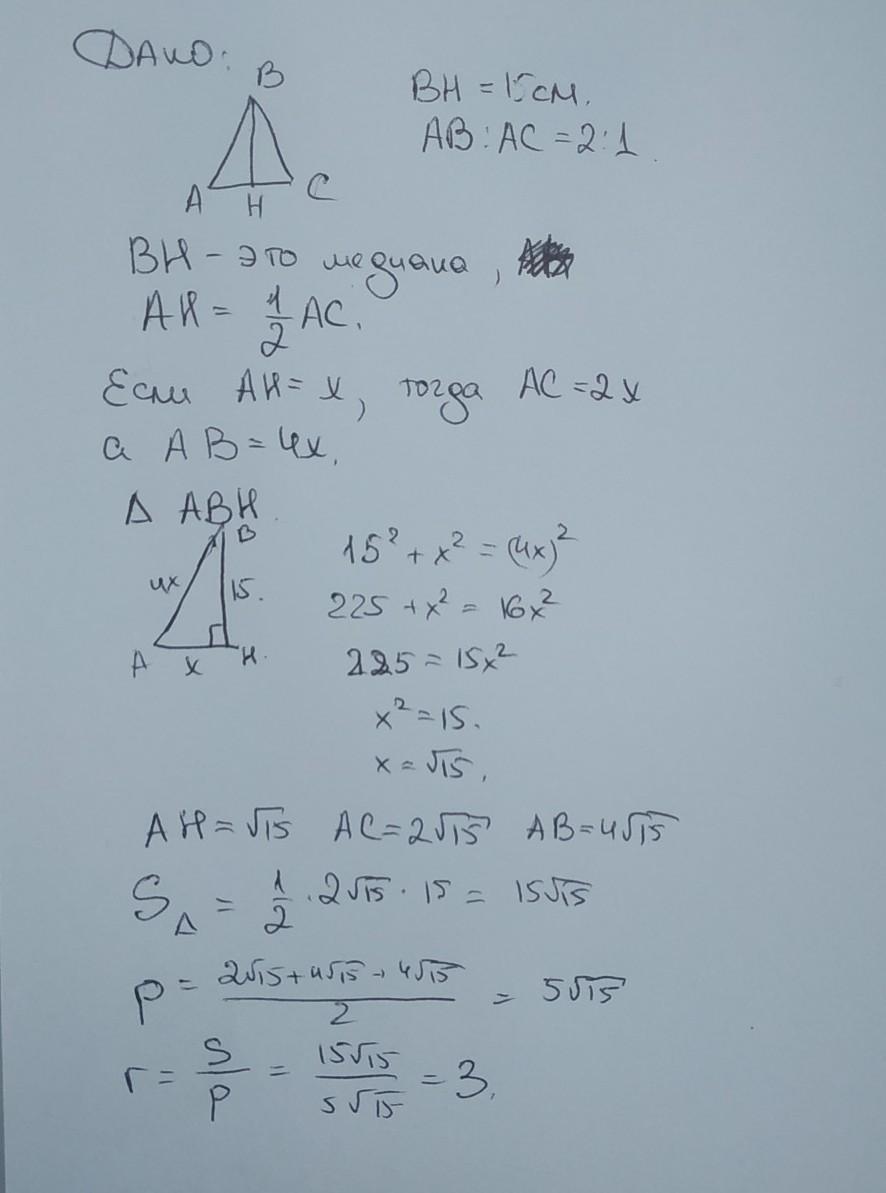 Дано:
B
A H C
BH = 15 см.
AB : AC = 2 : 1.
BH – это медиана,
AH = 1/2 AC.
Если AH = x, тогда AC = 2x
а AB = 4x.
Δ ABH.
B
4x 15.
A x H.
15² + x² = (4x)²
225 + x² = 16x²
225 = 15x²
x² = 15.
x = √15,
AH = √15 AC = 2√15 AB = 4√15
S△ = 1/2 · 2√15 · 15 = 15√15
p = (2√15 + 4√15 + 4√15)/2 = 5√15
r = S/p = 15√15/5√15 = 3.